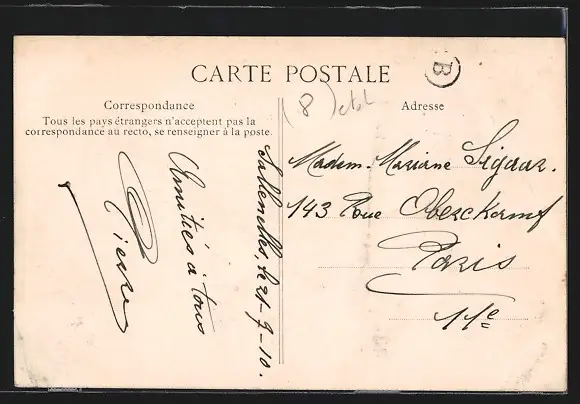 CARTE POSTALE
B
(8)
Correspondance
Tous les pays étrangers n'acceptent pas la
correspondance au recto, se renseigner à la poste.
Adresse
le 21-9-10.
Amitiés à tous
Pierre
Madem. Mariane Sigaar.
143 Rue Oberckampf
Paris
11e